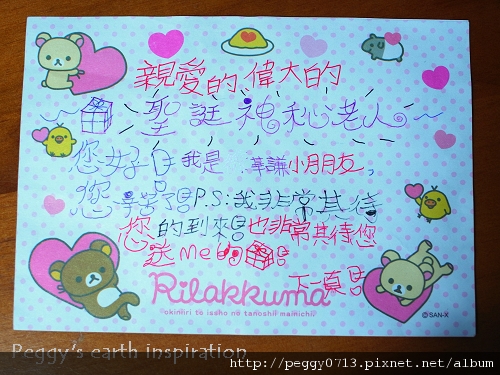 親愛的偉大的
聖誕神秘老人
您好 我是 華謙小朋友,
您辛苦了 P.S:我非常其待
您的到來 也非常其待您
送 Me
下一頁
Rilakkuma
okiniiri to issho no tanoshii mainichi
©SAN-X
Peggy's earth inspiration
http://peggy0713.pixnet.net/album